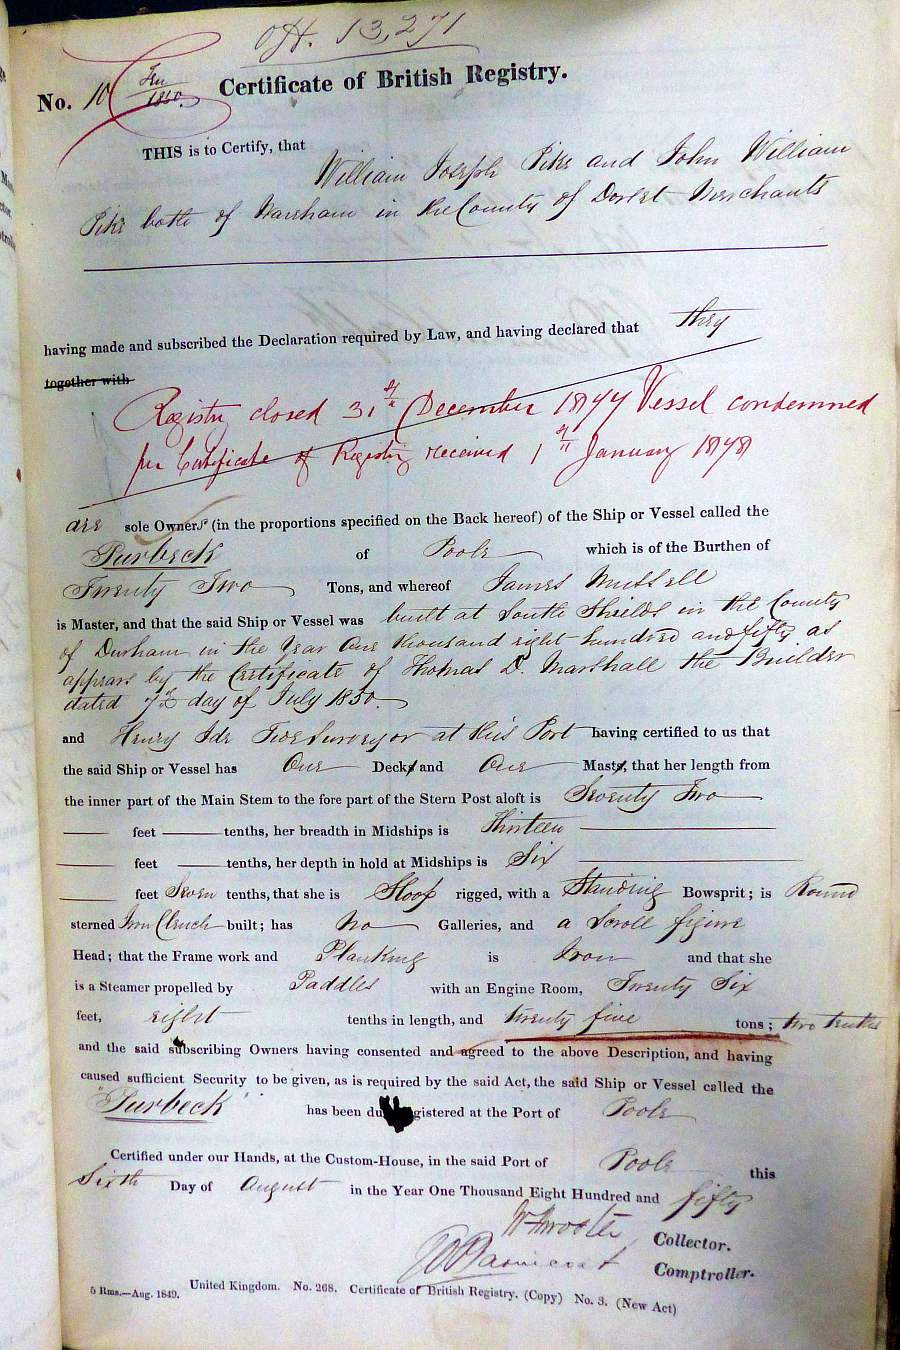 Off. 13,271
No. 10 1850. Certificate of British Registry.
THIS is to Certify, that
William Joseph Pike and John William
Pike both of Wareham in the County of Dorset Merchants
having made and subscribed the Declaration required by Law, and having declared that they
together with
Registry closed 31st December 1877 Vessel condemned
per Certificate of Registry received 1st January 1878
are sole Owners (in the proportions specified on the Back hereof) of the Ship or Vessel called the
Purbeck of Poole which is of the Burthen of
Twenty Two Tons, and whereof James Mussell
is Master, and that the said Ship or Vessel was built at South Shields in the County
of Durham in the Year One thousand eight hundred and fifty as
appears by the Certificate of Thomas D. Marshall the Builder
dated 7th day of July 1850.
and Henry Ide Tide Surveyor at this Port having certified to us that
the said Ship or Vessel has One Decks and One Masts, that her length from
the inner part of the Main Stem to the fore part of the Stern Post aloft is Seventy Two
feet tenths, her breadth in Midships is Thirteen
feet tenths, her depth in hold at Midships is Six
feet Seven tenths, that she is Sloop rigged, with a Standing Bowsprit; is Round
sterned Iron Clench built; has No Galleries, and a Scroll figure
Head; that the Frame work and Planking is Iron and that she
is a Steamer propelled by Paddles with an Engine Room, Twenty Six
feet, eight tenths in length, and twenty five tons; two tenths
and the said subscribing Owners having consented and agreed to the above Description, and having
caused sufficient Security to be given, as is required by the said Act, the said Ship or Vessel called the
"Purbeck" has been du gistered at the Port of Poole
Certified under our Hands, at the Custom-House, in the said Port of Poole this
Sixth Day of August in the Year One Thousand Eight Hundred and fifty
Collector.
Comptroller.
5 Rms.—Aug. 1849. United Kingdom. No. 268. Certificate of British Registry. (Copy) No. 3. (New Act)